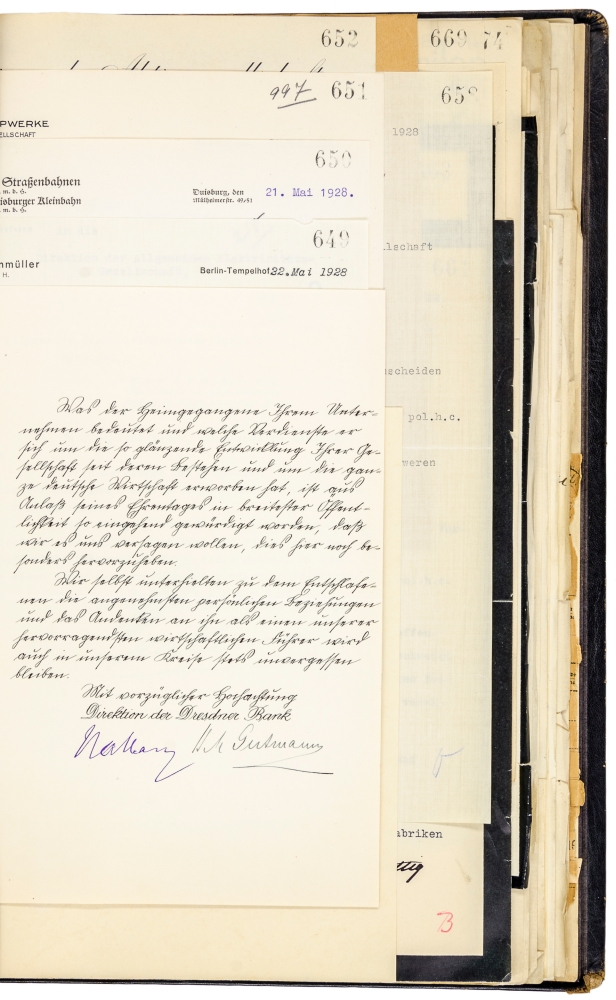 652
669 74
997 651
658
PWERKE
ELLSCHAFT
1928
650
Straßenbahnen
m. b. H.
isburger Kleinbahn
m. b. H.
Duisburg, den 21. Mai 1928.
Mülheimerstr. 49/51
649
nmüller
H.
Berlin-Tempelhof 22. Mai 1928
llschaft
scheiden
pol.h.c.
weren
Was der Heimgegangene Ihrem Unter-
nehmen bedeutet und welche Verdienste er
sich um die so glänzende Entwicklung Ihrer Ge-
sellschaft seit deren Bestehen und um die gan-
ze deutsche Wirtschaft erworben hat, ist aus
Anlaß seines Ehrentages in breitester Öffent-
lichkeit so eingehend gewürdigt worden, daß
wir es uns versagen wollen, dies hier noch be-
sonders hervorzuheben.
Wir selbst unterhielten zu dem Entschlafe-
nen die angenehmsten persönlichen Beziehungen
und das Andenken an ihn als einen unserer
hervorragendsten wirtschaftlichen Führer wird
auch in unserem Kreise stets unvergessen
bleiben.
Mit vorzüglicher Hochachtung
Direktion der Dresdner Bank
Nathan Gutmann
abriken
B